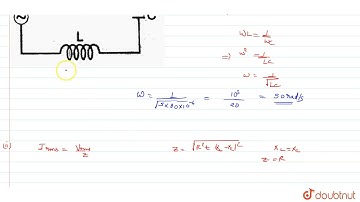 L
ωL = 1/ωC
⇒ ω² = 1/LC
ω = 1/√LC
ω = 1/√5×80×10⁻⁶ = 10³/20 = 50 rad/s
Irms = Vrms/Z Z = √R²+(XL-XC)² XL = XC
Z = R
doubtnut